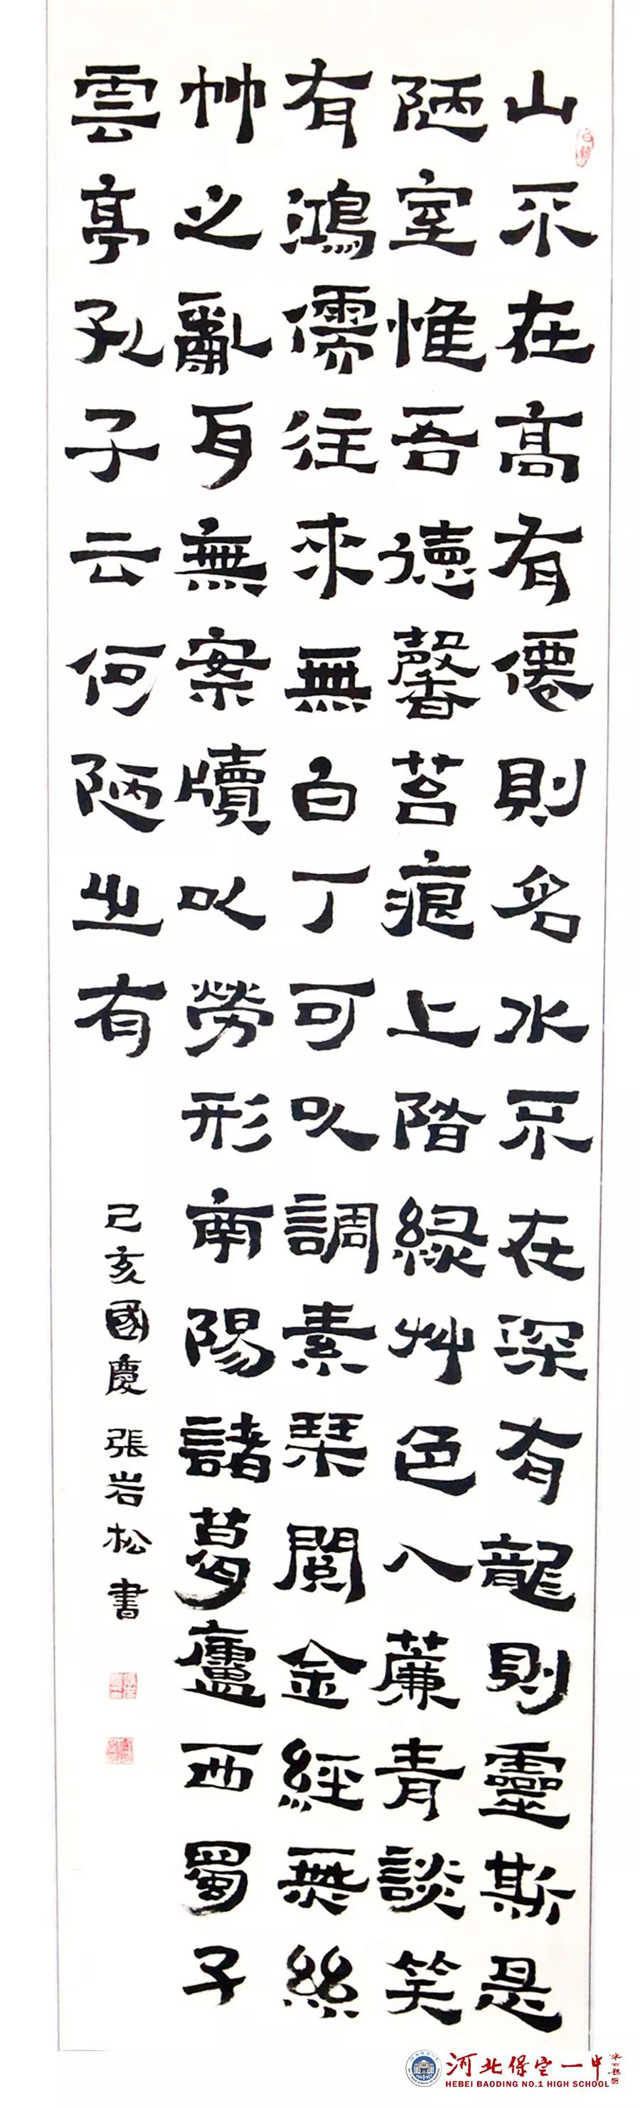 山不在高有僊則名水不在深有龍則靈斯是
陋室惟吾德馨苔痕上階緑艸色入簾青談笑
有鴻儒往來無白丁可以調素琴閱金經無絲
竹之亂耳無案牘以勞形南陽諸葛廬西蜀子
雲亭孔子云何陋之有
己亥國慶張岩松書
河北保定一中
HEBEI BAODING NO.1 HIGH SCHOOL